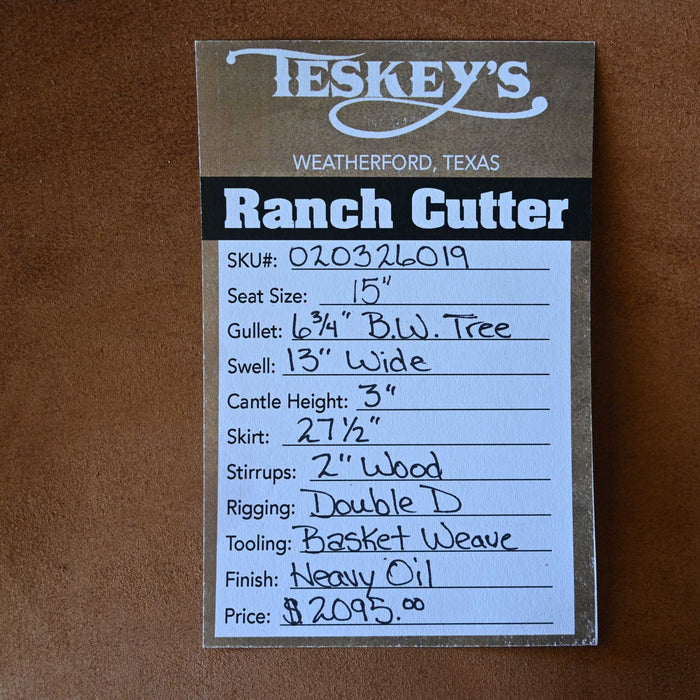 TESKEY'S
WEATHERFORD, TEXAS
Ranch Cutter
SKU#: 020326019
Seat Size: 15"
Gullet: 6 3/4" B.W. Tree
Swell: 13" Wide
Cantle Height: 3"
Skirt: 27 1/2"
Stirrups: 2" Wood
Rigging: Double D
Tooling: Basket Weave
Finish: Heavy Oil
Price: $2095.00